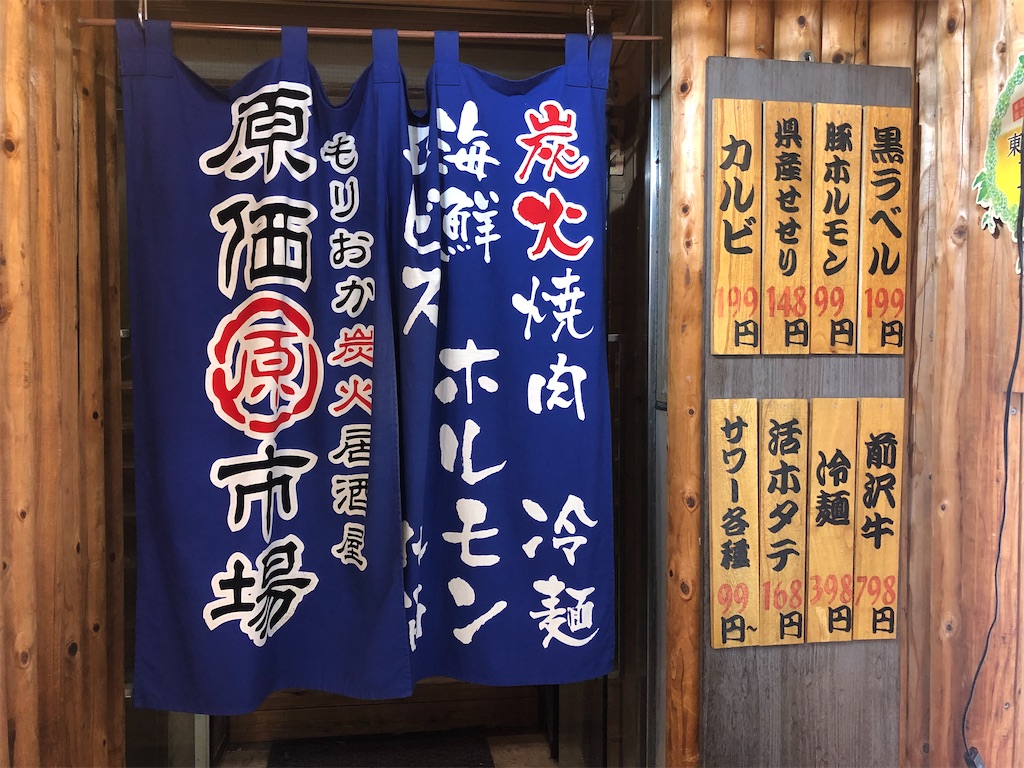 炭火焼肉 冷麺
海鮮 ホルモン
もりおか炭火居酒屋
原価 原 市場
黒ラベル 199円
豚ホルモン 99円
県産せせり 148円
カルビ 199円
前沢牛 798円
冷麺 398円
活ホタテ 168円
サワー各種 99円~
東